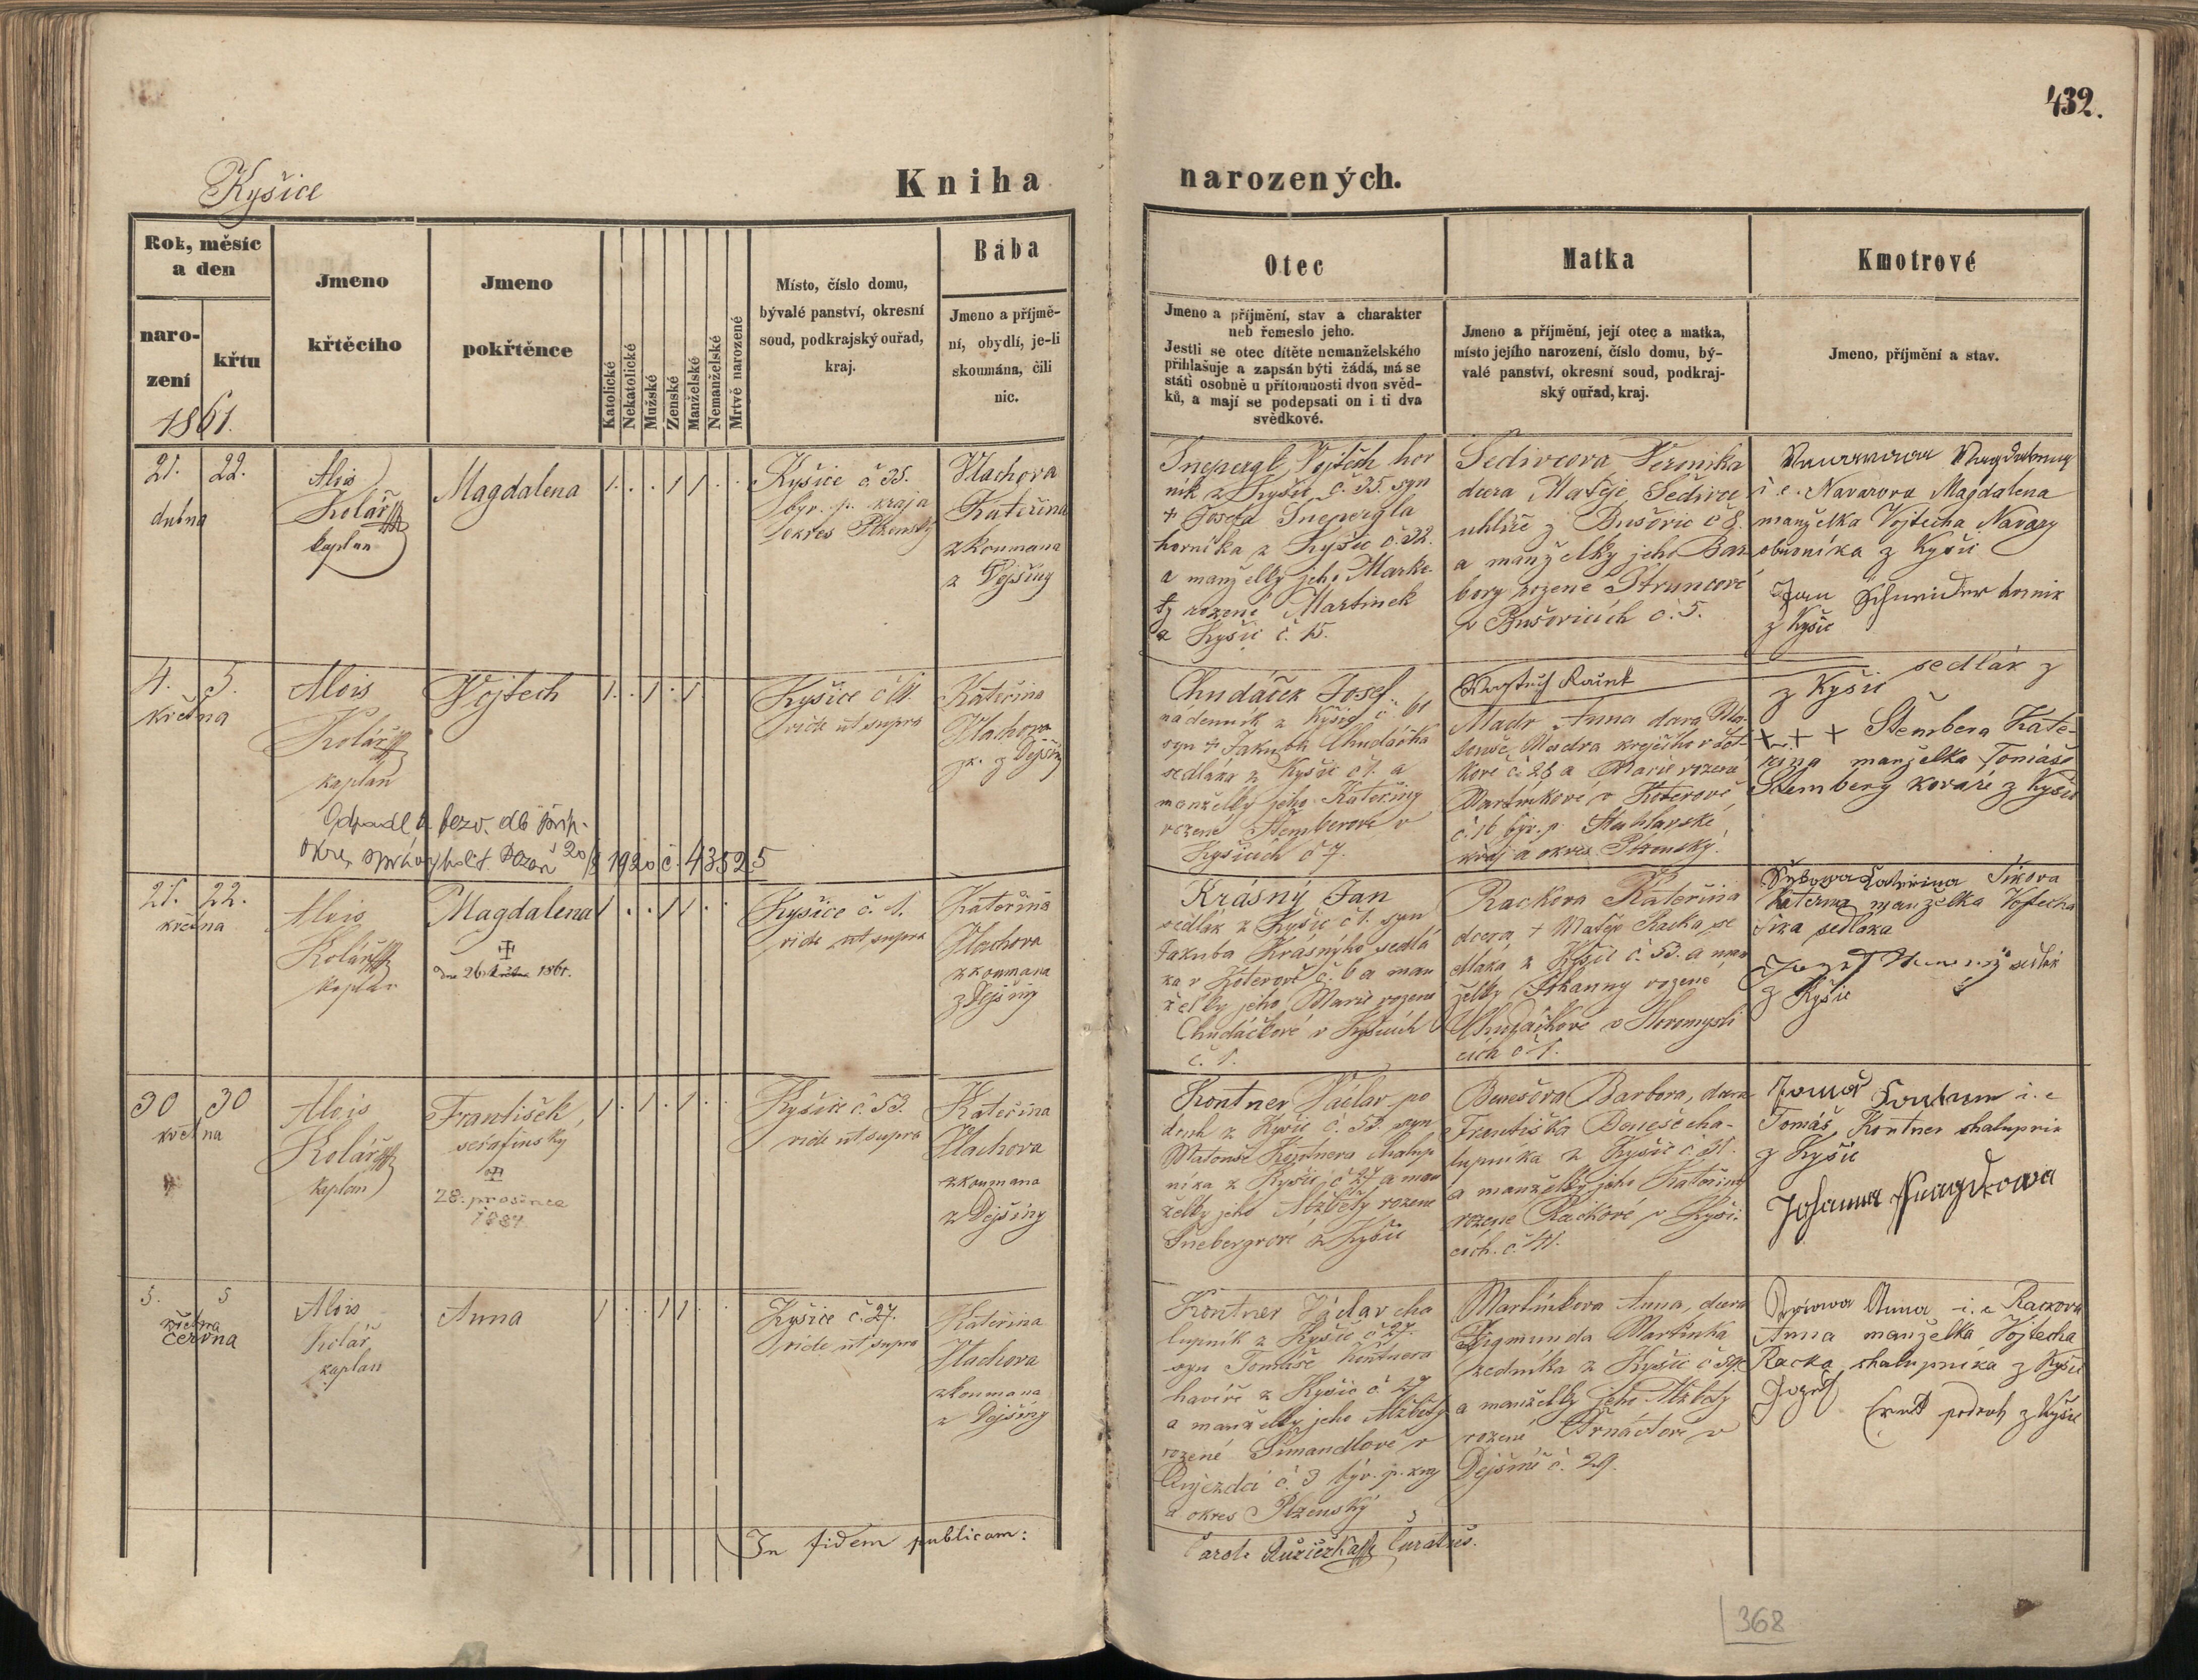 432.
Kyšice
Kniha narozených.
Rok, měsíc
a den
naro-
zení
křtu
1861.
Jmeno
křtěcího
Jmeno
pokřtěnce
Katolické
Nekatolické
Mužské
Ženské
Manželské
Nemanželské
Mrtvě narozené
Místo, číslo domu,
bývalé panství, okresní
soud, podkrajský ouřad,
kraj.
Bába
Jmeno a příjmě-
ní, obydlí, je-li
skoumána, čili
nic.
Otec
Jmeno a příjmění, stav a charakter
neb řemeslo jeho.
Jestli se otec dítěte nemanželského
přihlašuje a zapsán býti žádá, má se
státi osobně u přítomnosti dvou svěd-
ků, a mají se podepsati on i ti dva
svědkové.
Matka
Jmeno a příjmění, její otec a matka,
místo jejího narození, číslo domu, bý-
valé panství, okresní soud, podkraj-
ský ouřad, kraj.
Kmotrové
Jmeno, příjmění a stav.
21. 22.
dubna
Alois
Kolář
kaplan
Magdalena
1 . . 1 1 . .
Kyšice č 35.
byv. p. kraj a
okres Plzenský
Vlachova
Kateřina
zkoumana
z Dejšiny
Šnepergl Vojtěch hor
ník z Kyšic č. 35. syn
+ Josefa Šnepergla
horníka z Kyšic č. 32.
a manželky jeho Marke-
ty rozené Martinek
z Kyšic č. 15.
Šedivcova Veronika
dcera Matěje Šedivce
uhlíře z Bušovic č 8.
a manželky jeho Bar
bory rozené Štruncové
v Bušovicích č. 5.
i. e. Navarova Magdalena
manželka Vojtecha Navary
z Kyšic
Jan Schneider
z Kyšic
4. 5.
května
Alois
Kolář
kaplan
Vojtech
1 . 1 . 1
Kyšice č 61.
vide ut supra
Kateřina
Vlachova
zk. z Dejšiny
okres. správy polit. Plzeň 20/8 1920 č. 43525
Chudáček Josef
nádenník z Kyšic č 61
syn + Jakuba Chudáčka
sedláka z Kyšic č 1. a
manželky jeho Kateřiny
rozené Štemberove v
Kyšicích č 7.
Madr Anna dcera Ma-
touše Madra krejčího v Let-
kově č. 28 a Marie rozená
Martínkové v Koterově
č. 16 býv. p. Stahlavské,
kraj a okres Plzenský.
sedlák z
z Kyšic
+ + + Štembera Kate-
řina manželka Tomáše
Štembery kováře z Kyšic
21. 22.
května
Alois
Kolář
kaplan
Magdalena
dne 26. května 1861.
1 . . 1 1 . .
Kyšice č. 1.
vide ut supra
Kateřina
Vlachova
zkoumana
z Dejšiny
Krásný Jan
sedlák z Kyšic č 1. syn
Jakuba Krásnýho sedlá
ka v Koterově č. 6 a man
želky jeho Marie rozene
Chudáčkové v Kyšicích
č. 1.
Rackova Kateřina
dcera + Matěje Racka se
dláka z Kyšic č. 53. a man
želky Johanny rozené
Chudáčkové v Horomysli
cích č 1.
Kateřina Šikova
Katerina manželka Vojtecha
Šika sedlaka
sedlák
z Kyšic
30 30
května
Alois
Kolář
kaplan
František
serafinský
28. prosince
1 . 1 . 1 . .
Kyšice č. 53.
vide ut supra
Kateřina
Vlachova
zkoumana
z Dejšiny
Kontner Václav po
druh z Kyšic č. 53. syn
Matouše Kontnera chalup
níka z Kyšic č 27 a man
želky jeho Alžběty rozene
Šnebergrové z Kyšic
Benešova Barbora, dcera
Františka Beneše cha-
lupníka z Kyšic č. 31.
a manželky jeho Kateřiny
rozene Rackové v Kyši-
cích. č. 41.
i. e
Tomáš Kontner chalupnik
z Kyšic
Johanna
5. 5
května
června
Alois
Kolář
kaplan
Anna
1 . . 1 1 . .
Kyšice č. 27.
vide ut supra
Kateřina
Vlachova
zkoumana
z Dejšiny
Kontner Václav cha
lupník z Kyšic č 27.
syn Tomáše Kontnera
havíře z Kyšic č. 27
a manželky jeho Alžběty
rozené Šimandlové v
Oujezdci č. 3 býv. p. kraj
a okres Plzenský
Martínkova Anna, dcera
Zigmunda Martinka
zedníka z Kyšic č 59.
a manželky jeho Alžbety
rozené Trnáctove v
Dejšině č. 29.
Anna i. e Rackova
Anna manželka Vojtecha
Racka chalupníka z Kyšic
Jozef
podruh z Kyšic
In fidem publicam:
Carol. Růžička Curatus.
368